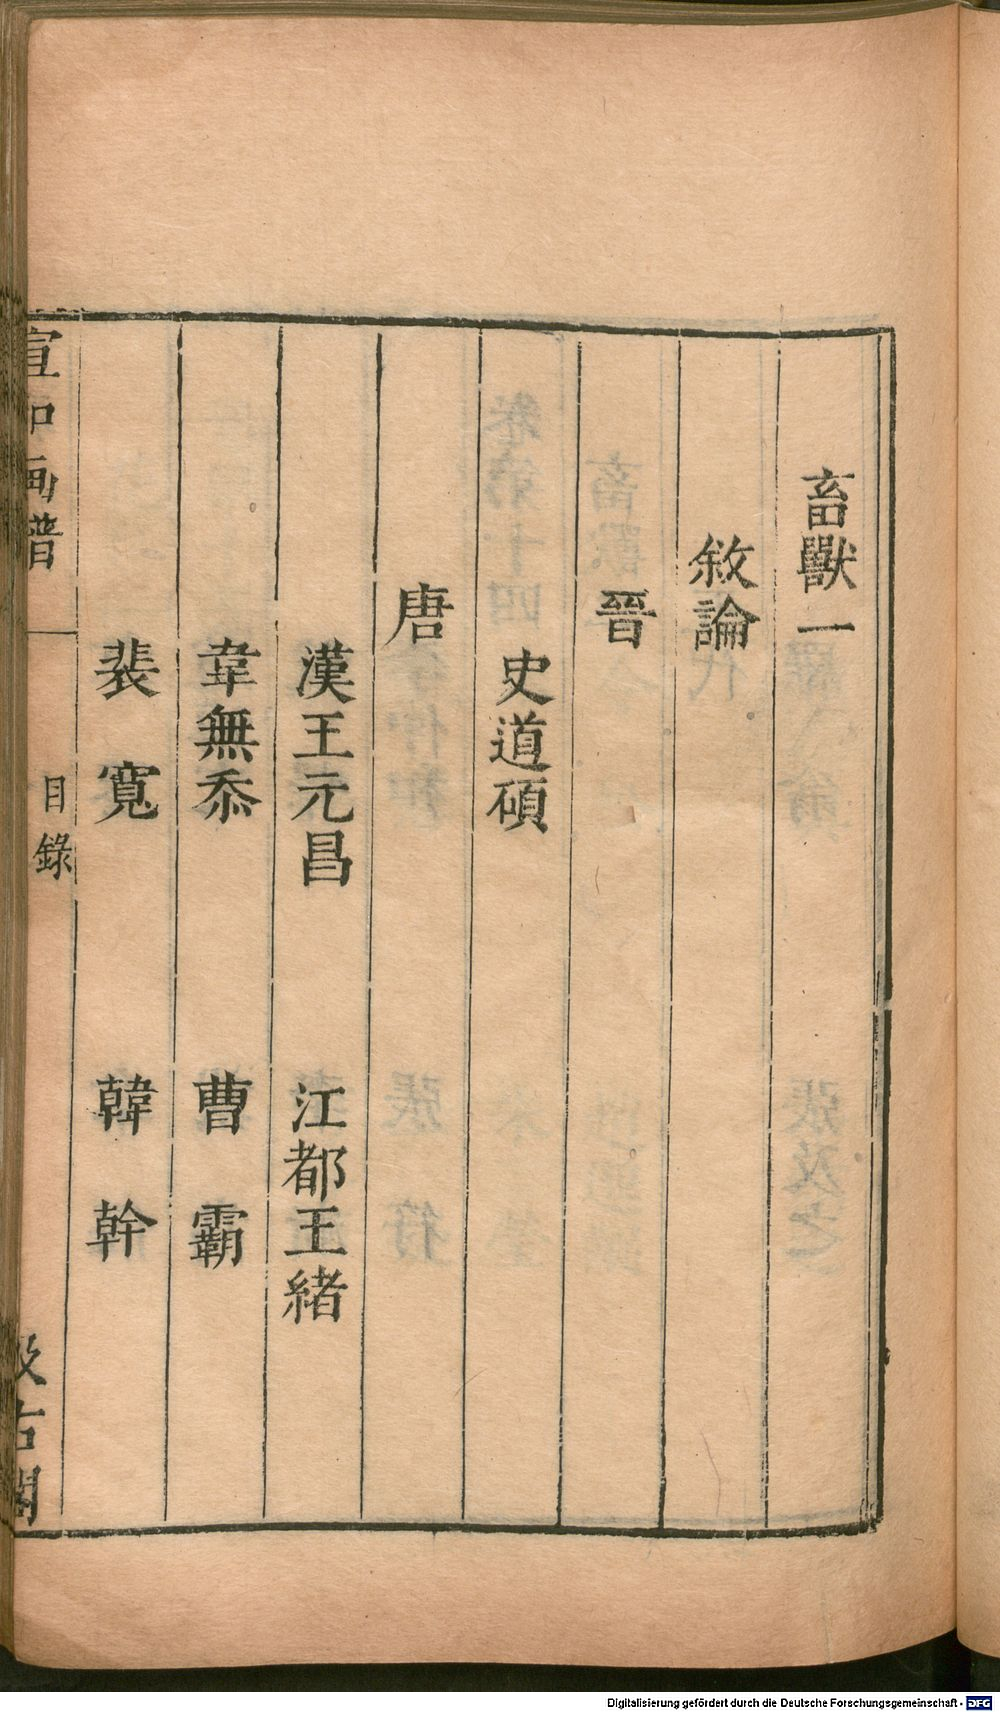 畜獸一
敘論
晉
史道碩
唐
漢王元昌　江都王緒
韋無忝　曹　霸
裴　寬　韓　幹
宣和画譜　目錄　汲古閣
Digitalisierung gefördert durch die Deutsche Forschungsgemeinschaft - DFG